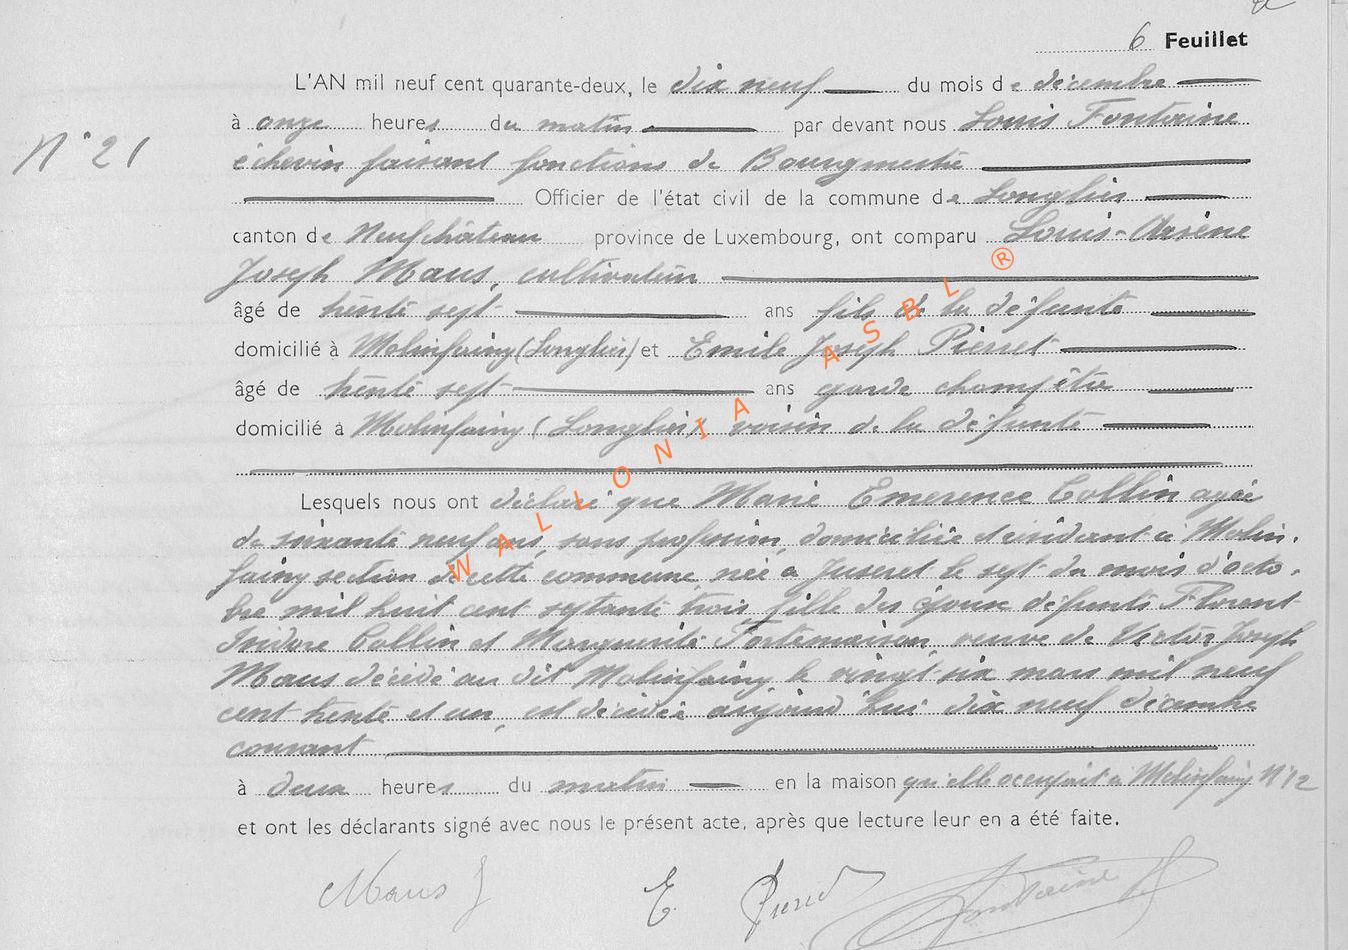 6 Feuillet
L'AN mil neuf cent quarante-deux, le dix neuf du mois de décembre
à onze heures du matin par devant nous Louis Fontaine
N° 21
échevin faisant fonctions de Bourgmestre
Officier de l'état civil de la commune de Longlier
canton de Neufchâteau province de Luxembourg, ont comparu Louis-Arsène
Joseph Maus, cultivateur
âgé de trente sept ans fils de la défunte
domicilié à Molinfaing (Longlier) et Emile Joseph Pierret
âgé de trente sept ans garde champêtre
domicilié à Molinfaing (Longlier) voisin de la défunte
Lesquels nous ont déclaré que Marie Emerence Collin agée
de soixante neuf ans, sans profession, domiciliée et résidant à Molin-
faing section de cette commune, née à Juseret le sept du mois d'octo-
bre mil huit cent septante trois, fille des époux défunts Florent
Isidore Collin et Marguerite Fortemaison, veuve de Victor Joseph
Maus décédé au dit Molinfaing le vingt-six mars mil neuf
cent trente et un, est décédée aujourd'hui dix neuf décembre
courant
à deux heures du matin en la maison qu'elle occupait à Molinfaing N°12
et ont les déclarants signé avec nous le présent acte, après que lecture leur en a été faite.
Maus J E. Pierret Fontaine
WALLONIA ASBL ®